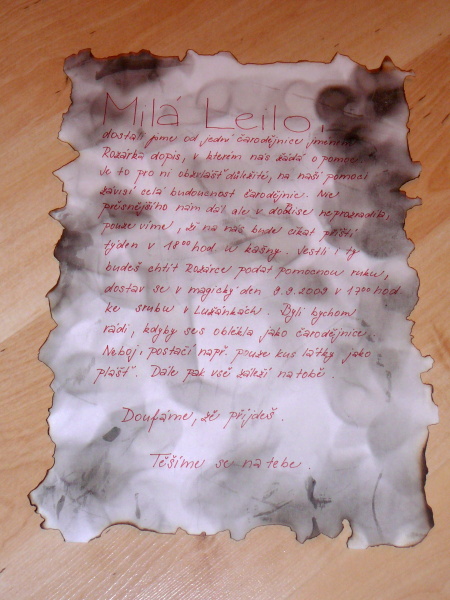 Milá Leilo,
dostali jsme od jedné čarodějnice jménem
Rozárka dopis, v kterém nás žádá o pomoc.
Je to pro ni obzvlášť důležité, na naší pomoci
závisí celá budoucnost čarodějnic. Nic
přesnějšího nám dál ale v dopise neprozradila,
pouze víme, že na nás bude čekat příští
týden v 18⁰⁰ hod. u kašny. Jestli i ty
budeš chtít Rozárce podat pomocnou ruku,
dostav se v magický den 9.9.2009 v 17⁰⁰ hod
ke srubu v Lužánkách. Byli bychom
rádi, kdyby ses oblékla jako čarodějnice.
Neboj, postačí např. pouze kus látky jako
plášť. Dále pak vše záleží na tobě.
Doufáme, že přijdeš.
Těšíme se na tebe.